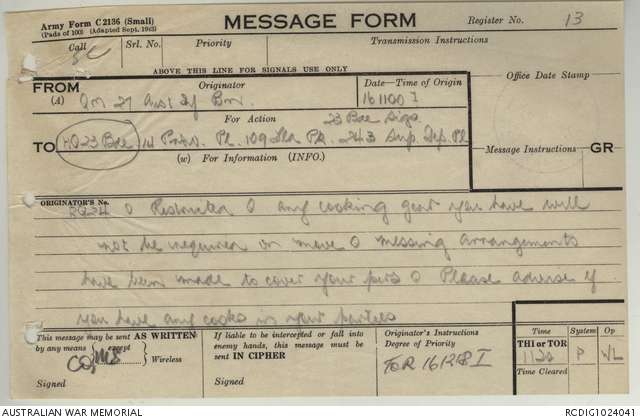 Army Form C 2136 (Small)
(Pads of 100) (Adapted Sept. 1943)
MESSAGE FORM
Register No. 13
Call
Srl. No.
Priority
Transmission Instructions
ABOVE THIS LINE FOR SIGNALS USE ONLY
FROM
(A)
Originator
QM 27 Aust Inf Bn.
Date—Time of Origin
161100 I
Office Date Stamp
For Action
23 Bde Sigs.
TO
HQ 23 Bde 14 Prov. Pl. 109 Pl. 243 Sup. Dep. Pl
(w) For Information (INFO.)
Message Instructions
GR
ORIGINATOR'S No.
RQ24 O Restricted O any cooking gear you have will
not be required on move O messing arrangements
have been made to cover your pers O Please advise if
you have any cooks in your parties
This message may be sent AS WRITTEN
by any means { except
Wireless
CQMS
Signed
If liable to be intercepted or fall into
enemy hands, this message must be
sent IN CIPHER
Signed
Originator's Instructions
Degree of Priority
TOR 161218 I
Time
System
Op
THI or TOR
1120 P
Time Cleared
AUSTRALIAN WAR MEMORIAL
RCDIG1024041